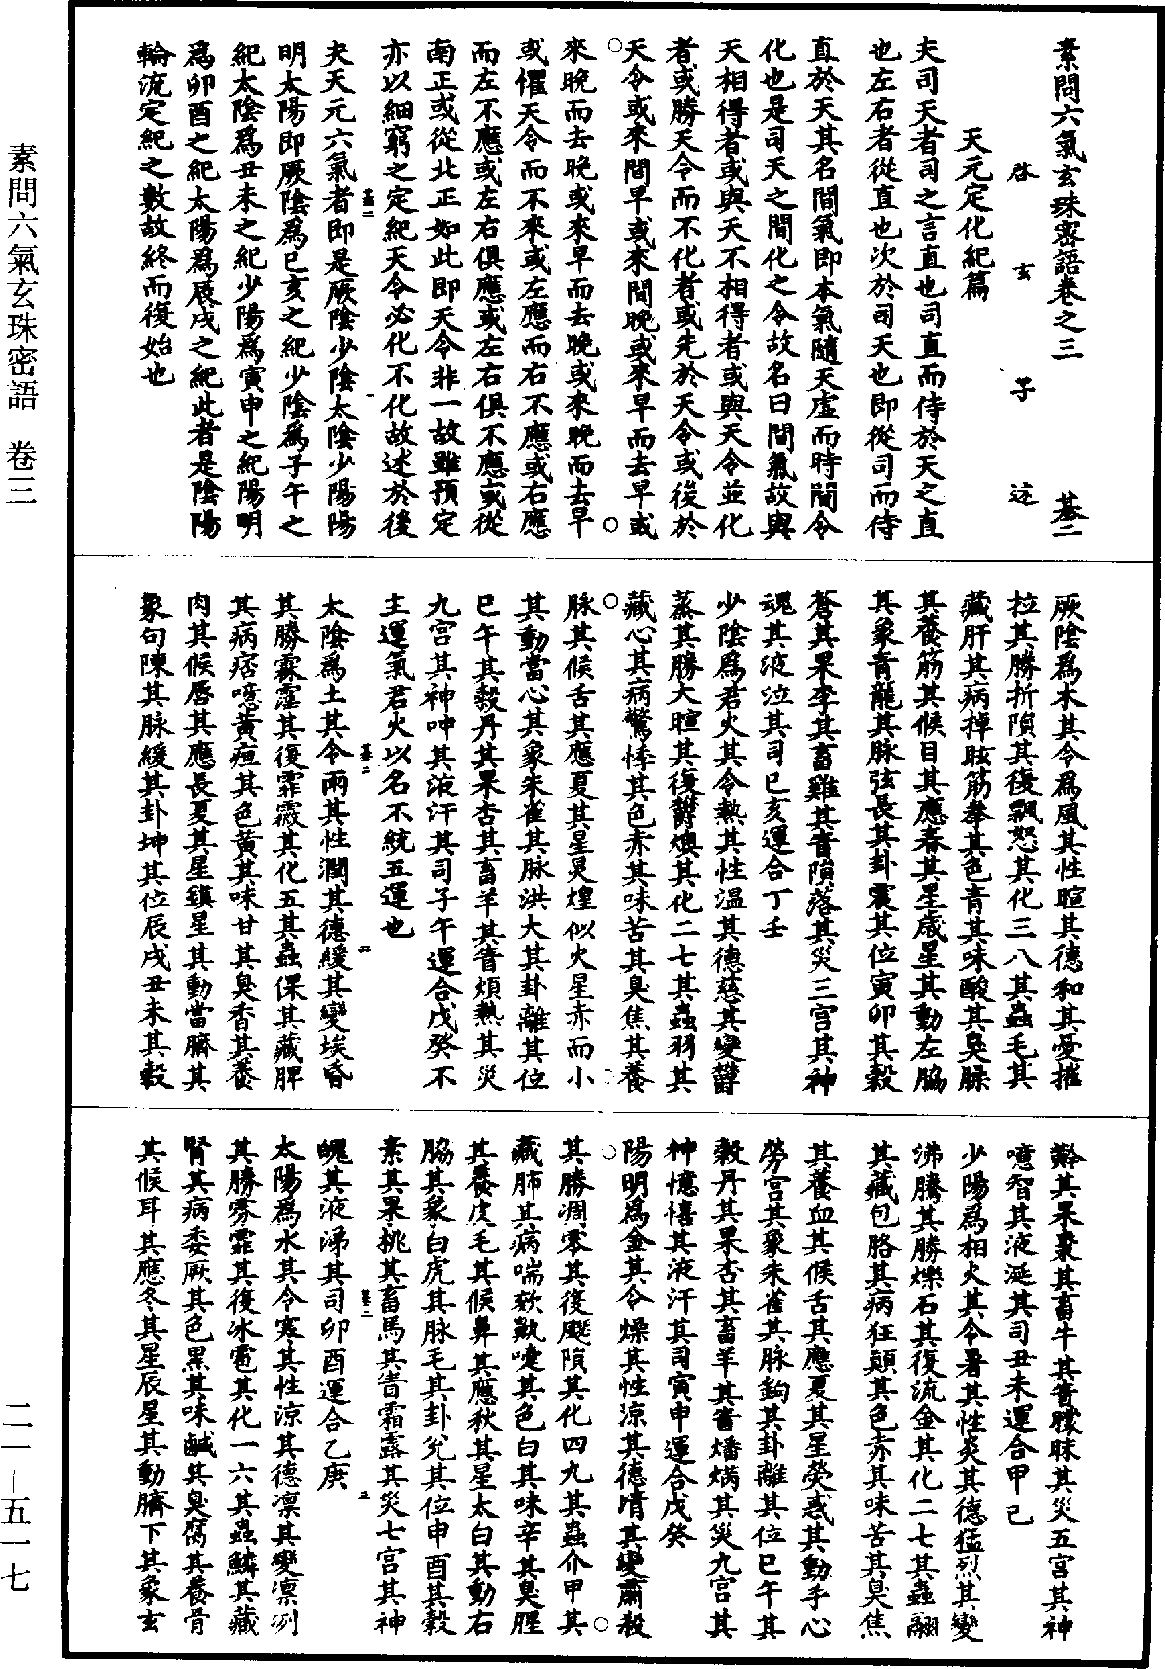 素問六氣玄珠密語卷之三　　　棊二
啓玄子述
天元定化紀篇
夫司天者司之言直也司直而侍於天之直
也左右者從直也次於司天也即從司而侍
直於天其名間氣即本氣隨天虛而時間令
化也是司天之間化之令故名曰間氣故與
天相得者或與天不相得者或與天令並化
者或勝天令而不化者或先於天令或後於
天令或來間早或來間晚或來早而去早或
來晚而去晚或來早而去晚或來晚而去早
或懼天令而不來或左應而右不應或右應
而左不應或左右俱應或左右俱不應或從
南正或從北正如此即天令非一故雖預定
亦以細窮之定紀天令必化不化故述於後
夫天元六氣者即是厥陰少陰太陰少陽陽
明太陽即厥陰為巳亥之紀少陰為子午之
紀太陰為丑未之紀少陽為寅申之紀陽明
為卯酉之紀太陽為辰戌之紀此者是陰陽
輪流定紀之數故終而復始也
厥陰為木其令為風其性暄其德和其憂摧
拉其勝折隕其復飄怒其化三八其蟲毛其
藏肝其病掉眩筋拳其色青其味酸其臭臊
其養筋其候目其應春其星歲星其動左脇
其象青龍其脉弦長其卦震其位寅卯其穀
蒼其果李其畜雞其眚隕落其災三宮其神
魂其液泣其司巳亥運合丁壬
少陰為君火其令熱其性溫其德慈其變鬱
蒸其勝大暄其復鬱燠其化二七其蟲羽其
藏心其病驚悸其色赤其味苦其臭焦其養
脉其候舌其應夏其星炅煌似火星赤而小
其動當心其象朱雀其脉洪大其卦離其位
巳午其穀丹其果杏其畜羊其眚煩熱其災
九宮其神呻其液汗其司子午運合戊癸不
主運氣君火以名不統五運也
太陰為土其令雨其性潤其德緩其變埃昏
其勝霖霪其復霏霰其化五其蟲倮其藏脾
其病痞噫黃疸其色黃其味甘其臭香其養
肉其候唇其應長夏其星鎮星其動當臍其
象句陳其脉緩其卦坤其位辰戌丑未其穀
黅其果棗其畜牛其眚朦昧其災五宮其神
噫智其液涎其司丑未運合甲己
少陽為相火其令暑其性炎其德猛烈其變
沸騰其勝爍石其復流金其化二七其蟲翮
其藏包胳其病狂顛其色赤其味苦其臭焦
其養血其候舌其應夏其星熒惑其動手心
勞宮其象朱雀其脉鉤其卦離其位巳午其
穀丹其果杏其畜羊其眚燔焫其災九宮其
神憶憘其液汗其司寅申運合戊癸
陽明為金其令燥其性涼其德清其變肅殺
其勝凋零其復飈隕其化四九其蟲介甲其
藏肺其病喘欬歎嚏其色白其味辛其臭腥
其養皮毛其候鼻其應秋其星太白其動右
脇其象白虎其脉毛其卦兌其位申酉其穀
素其果桃其畜馬其眚霜露其災七宮其神
魄其液涕其司卯酉運合乙庚
太陽為水其令寒其性涼其德凜其變凛冽
其勝雰霏其復冰雹其化一六其蟲鱗其藏
腎其病委厥其色黑其味鹹其臭腐其養骨
其候耳其應冬其星辰星其動臍下其象玄
素問六氣玄珠密語　卷三
二一—五一七